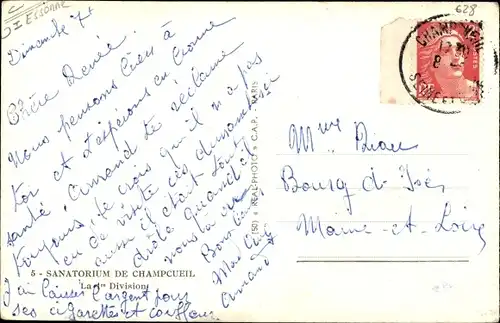 ESSONNE
628
Dimanche
Chère Renée
Nous pensons bien à
toi et t'espérons en bonne
santé. Armand te réclame
toujours. Je crois qu'il n'a pas
eu de visite ce dimanche
aussi il était tout
drôle quand il
nous a vu
Bons baisers
Armand
J'ai laissé l'argent pour
ses cigarettes et coiffeur
5 - SANATORIUM DE CHAMPCUEIL
La 1re Division
REAL-PHOTO C.A.P. PARIS
CHAMPCUEIL
8
Mme Biau
Bourg d'Iré
Maine-et-Loire